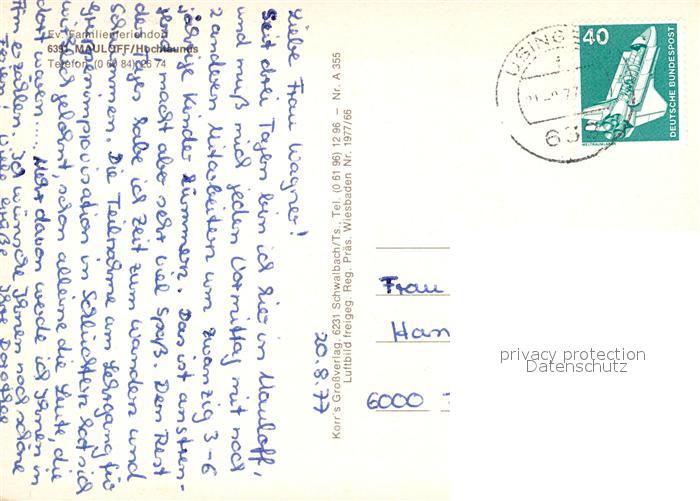 Ev. Familienferiendorf
6391 MAULOFF/Hochtaunus
Telefon (0 60 84) 26 74
Liebe Frau Wagner!
Seit drei Tagen bin ich hier in Mauloff,
und muß mich jeden Vormittag mit noch
2 anderen Mitarbeitern um zwanzig 3-6
jährige Kinder kümmern. Das ist anstren-
gend macht aber sehr viel Spaß. Den Rest
des Tages habe ich Zeit zum Wandern und
Schwimmen. Die Teilnahme am Lehrgang für
improvisation in Schlüchtern hat sich
gelohnt, schon alleine die Leute, die
dort waren.... Mehr davon werde ich Ihnen in
erzählen. Ich wünsche Ihnen noch schöne
Ferien! Viele Grüße Ihre Dorothee
Korr's Großverlag, 6231 Schwalbach/Ts., Tel. (0 61 96) 12 96 – Nr. A 355
Luftbild freigeg. Reg. Präs. Wiesbaden Nr. 1977/66
20.8.77
USING
40
DEUTSCHE BUNDESPOST
WELTRAUMLABOR
Frau
Han
6000
privacy protection
Datenschutz